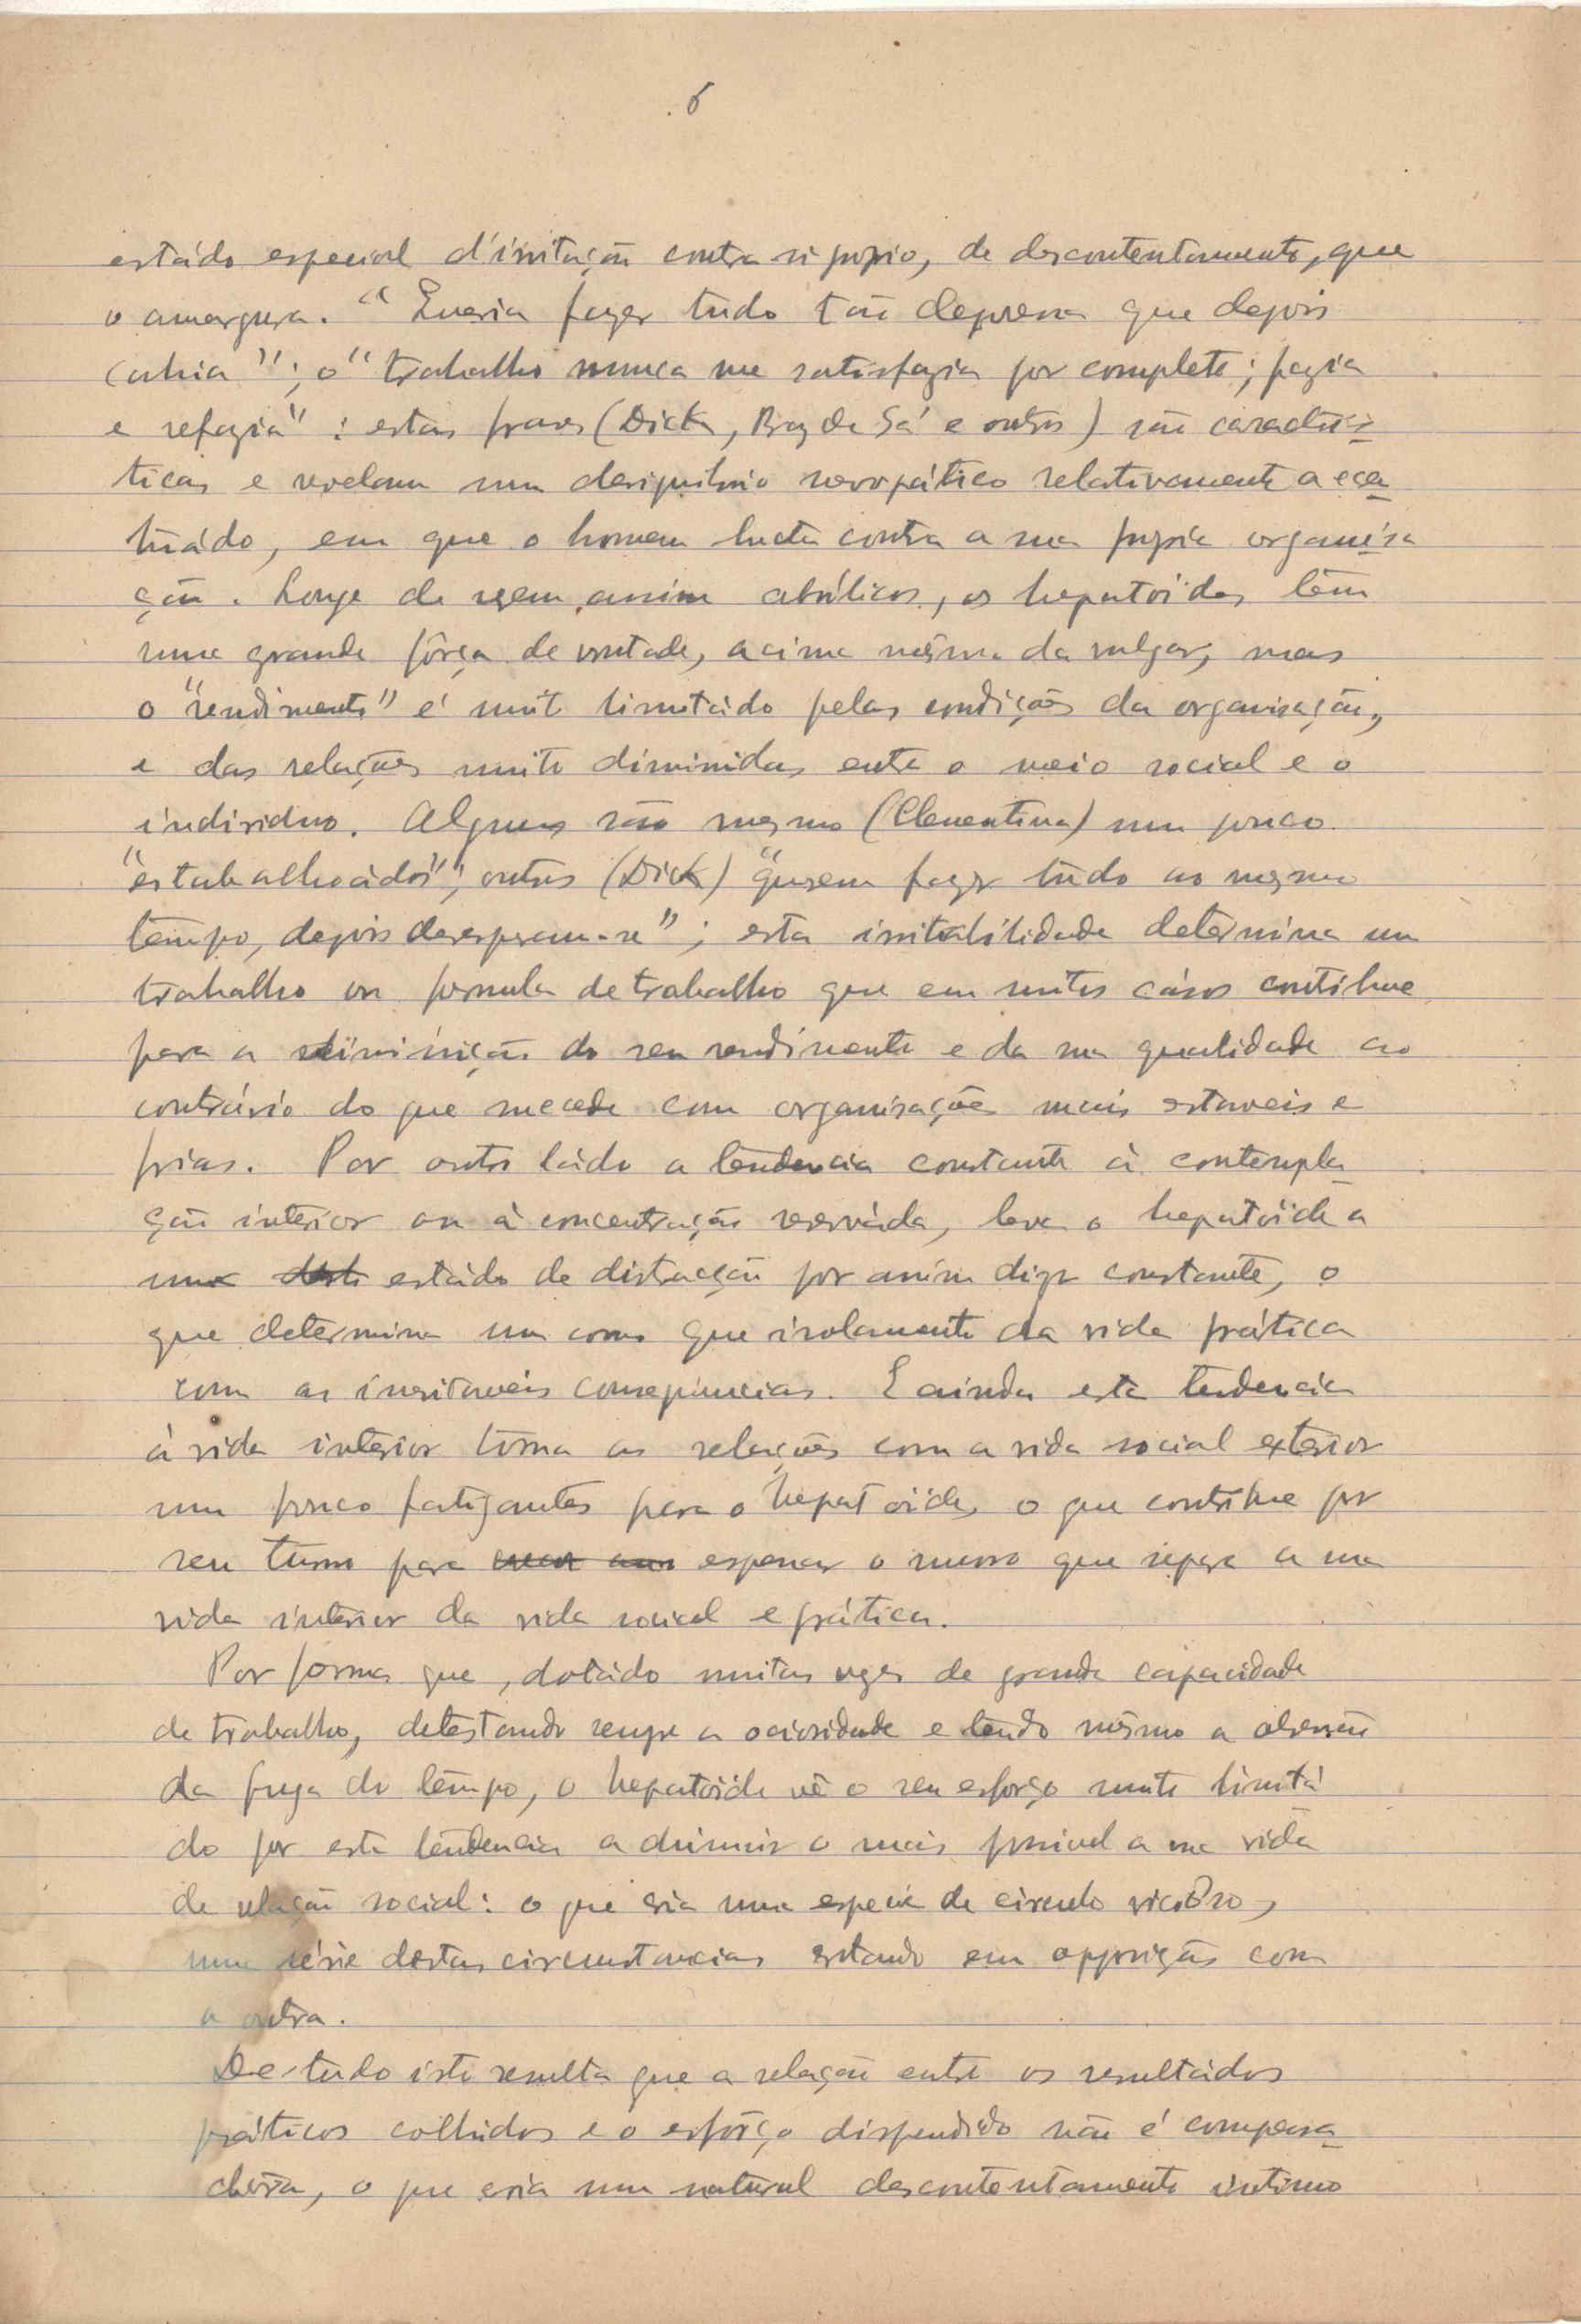 6
estádo especial d'irritação contra si proprio, de descontentamento, que
o amargura. "Queria fazer tudo tão depressa que depois
cahia"; o "trabalho nunca me satisfazia por completo; fazia
e refazia": estas frases (Dick, Braz de Sá e outros) são caracteris-
ticas e revelam um desiquilibrio nevropático relativamente acen-
tuádo, em que o homem lucta contra a sua propria organisa
ção. Longe de serem assim abúlicos, os hepatóides têm
uma grande fôrça de vontade, acima mêsmo da vulgar, mas
o "rendimento" é muito limitádo pelas condições da organisação,
e das relações muito diminuidas entre o meio social e o
individuo. Alguns são mesmo (Clementina) um pouco
"estabalhoádos"; outros (Dick) "querem fazer tudo ao mesmo
tempo, depois desesperam-se"; esta irritabilidade determina um
trabalho ou formula de trabalho que em muitos cásos contribue
para a diminuição do seu rendimento e da sua qualidade ao
contrário do que sucede com organisações mais estaveis e
frias. Por outro ládo a tendencia constante á contempla-
ção interior ou á concentração reserváda, leva o hepatóide a
um estádo de distracção por assim dizer constante, o
que determina um como que isolamento da vida prática
com as inevitaveis consequencias. E ainda esta tendencia
á vida interior torna as relações com a vida social exterior
um pouco fatigantes para o hepatóide, o que contribue por
seu turno para espessar o muro que separa a sua
vida interior da vida social e prática.
Por forma que, dotádo muitas vezes de grande capacidade
de trabalho, detestando sempre a ociosidade e tendo mêsmo a obsessão
da fuga do tempo, o hepatóide vê o seu esforço muito limitá
do por esta tendencia a diminuir o mais possivel a sua vida
de relação social: o que cria uma especie de circulo vicioso,
uma série destas circumstancias estando em opposição com
a outra.
De tudo isto resulta que a relação entre os resultádos
práticos colhidos e o esfôrço dispendido não é compensa-
dôra, o que cria um natural descontentamento intimo